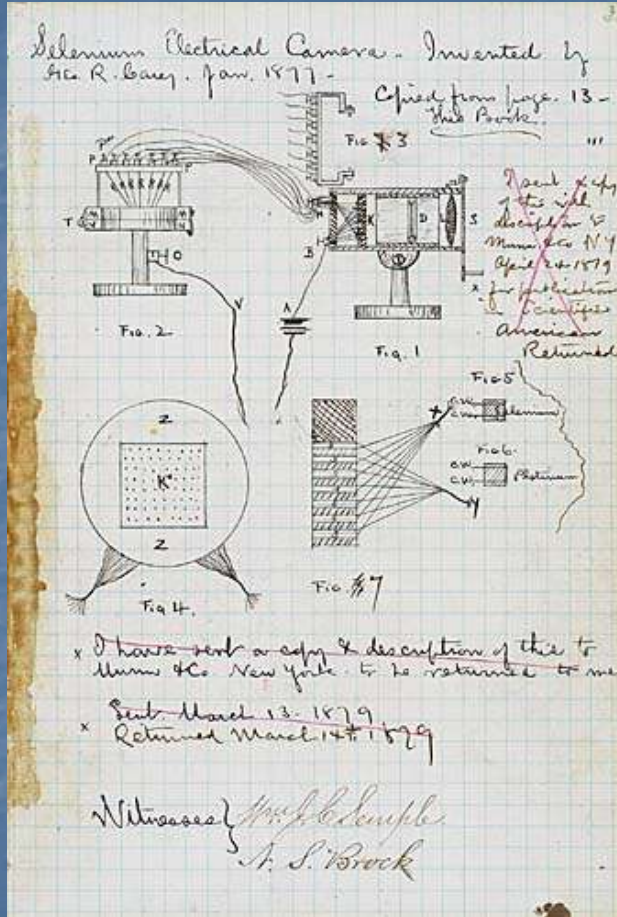 3
Selenium Electrical Camera. Invented by
Geo R. Carey. Jan. 1877-
Copied from page. 13-
this Book.
"'
Fig 3
P
P
T
O
V
Fig. 2
B
A
K
D
S
Fig. 1
I sent a copy
of this with
description to
Munn & Co N Y
April 24 1879
x for publication
in Scientific
American
Returned
Z
K
Z
Fig 4.
Fig 5
C.W.
C.W.
Selenium
Fig 6.
C.W.
C.W.
Platinum
X
Y
Fig. 7
x I have sent a copy & description of this to
Munn & Co New York. to be returned to me
x Sent March 13-1879
Returned March 14th 1879
Witnesses
Wm J C Semple
N. S. Brock